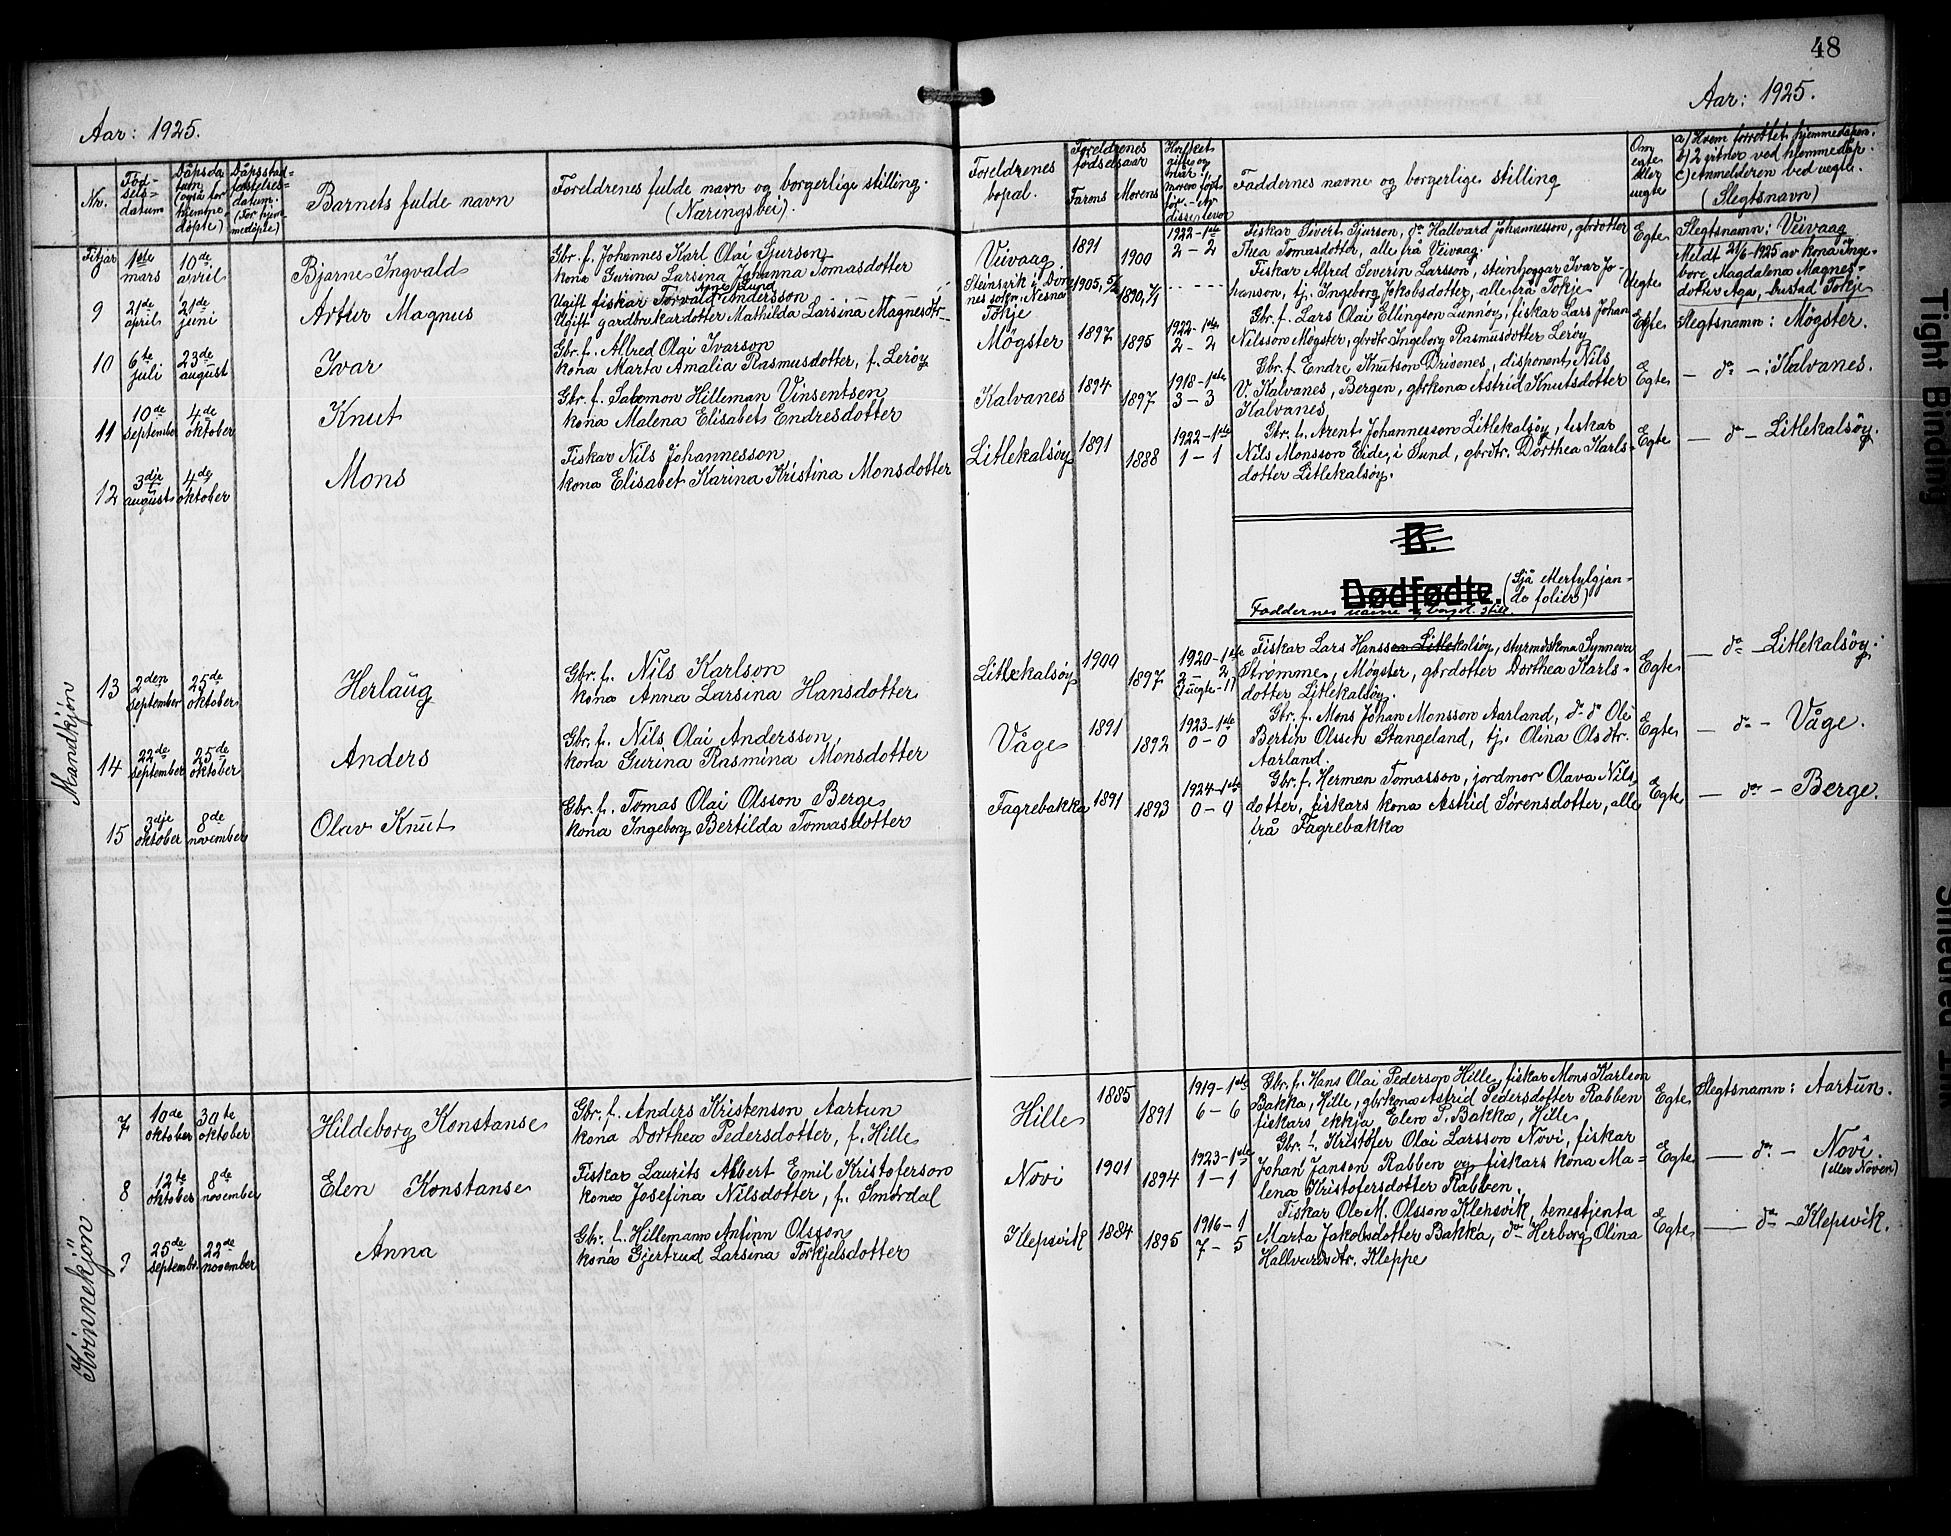 48
Aar: 1925.
Aar: 1925.
Nr.
Fød-
sels-
datum
Dåpsda
tum
(også for
hjemme
døpte)
Dåpsstad-
festelses-
datum.
(For hjem
medøpte)
Barnets fulde navn
Foreldrenes fulde navn og borgerlige stilling.
(Næringsvei).
Foreldrenes
bopal.
Foreldrenes
fødselsaar
Farens Morens
Faddernes navne og borgerlige stilling
Om
egte
eller
uegte
a) Hvem forrettet hjemmedåpen.
b) 2 vitner ved hjemmedåp.
c) Anmelderen ved uegte.
(Slegtsnavn)
Mandkjön
Fitjar
1ste
mars
10de
april
Bjarne Ingvald
Gbr. f. Johannes Karl Olai Sjurson
kona Gurina Larsina Johanna Tomasdotter
Veivaag
1891
1900
1922-1ste
2-2
Fiskar Sivert Sjurson, do Hallvard Johannesson, gbrdotter
Thea Tomasdotter, alle frå Veivaag.
Egte
Slegtsnamn: Veivaag
9
21de
april
21de
juni
Artur Magnus
Ugift fiskar Torvald Andersson
Ugift gardbrukardotter Mathilda Larsina Magnesdtr
Steinsvik i Døn
nes sokn, Nesna
Tokje
1905
1890
Fiskar Alfred Severin Larsson, steinhoggar Ivar Jo-
hanson, tj. Ingeborg Jakobsdotter, alle frå Tokje
Uegte
Meldt 21/6-1925 av kona Inge-
borg Magdalena Magnes-
dotter Aga, bustad Tokje
10
6te
juli
23de
august
Ivar
Gbr. f. Alfred Olai Ivarson
kona Marta Amalia Rasmusdotter, f. Lerøy
Møgster
1897
1895
1922-1ste
2-2
Gbr. f. Lars Olai Ellingson Lunnøy, fiskar Lars Johan
Nilsson Møgster, gbrdtr Ingeborg Rasmusdotter Lerøy
Egte
Slegtsnamn: Møgster.
11
10de
september
4de
oktober
Knut
Gbr. f. Salomon Hilleman Vinsentsen
kona Malena Elisabet Endresdotter
Kalvanes
1894
1897
1918-1ste
3-3
Gbr. f. Endre Knutson Drivenes, disponent Nils
V. Kalvanes, Bergen, gbrkona Astrid Knutsdotter
Kalvanes
Egte
— do — : Kalvanes.
12
3dje
august
4de
oktober
Mons
Fiskar Nils Johannesson
kona Elisabet Karina Kristina Monsdotter
Litlekalsöy
1891
1888
1922-1ste
1-1
Gbr. f. Arent Johannesson Litlekalsöy, fiskar
Nils Monsson Eide, i Sund, gbrdtr. Dorthea Karls-
dotter Litlekalsöy.
Egte
— do — Litlekalsöy.
B.
Dødfødte.
(Sjå etterfylgjan-
de folier)
Faddernes navne og borgel. still.
13
2den
september
25de
oktober
Herlaug
Gbr. f. Nils Karlson
kona Anna Larsina Hansdotter
Litlekalsöy
1900
1897
1920-1ste
2-2
(1 uegte-1)
Fiskar Lars Hansson Litlekalsöy, styrmdskona Synneva
Strømme, Møgster, gbrdotter Dorthea Karls-
dotter Litlekalsöy.
Egte
— do — Litlekalsöy.
14
22de
september
25de
oktober
Anders
Gbr. f. Nils Olai Andersson,
kona Gurina Rasmina Monsdotter
Våge
1891
1892
1923-1ste
0-0
Gbr. f. Mons Johan Monsson Aarland, do do Ole
Bertin Olssen Stangeland, tj. Olina Olsdtr.
Aarland.
Egte
— do — Våge.
15
3dje
oktober
8de
november
Olav Knut
Gbr. f. Tomas Olai Olsson Berge
kona Ingeborg Bertilda Tomasdotter
Fagrebakka
1891
1893
1924-1ste
0-0
Gbr. f. Herman Tomasson, jordmor Olava Nils
dotter, fiskars kona Astrid Sørensdotter, alle
frå Fagrebakka
Egte
— do — Berge.
Kvinnekjön
7
10de
oktober
30te
oktober
Hildeborg Konstanse
Gbr. f. Anders Kristenson Aartun
kona Dorthea Pedersdotter, f. Hille
Hille
1885
1891
1919-1ste
6-6
Gbr. f. Hans Olai Pederson Hille, fiskar Mons Karlson
Bakka, Hille, gbrkona Astrid Pedersdotter Rabben
fiskars ekkja Elen S. Bakka, Hille
Egte
Slegtsnamn: Aartun.
8
12te
oktober
8de
november
Elen Konstanse
Fiskar Laurits Albert Emil Kristoferson
kona Josefina Nilsdotter, f. Smørdal
Novi
1901
1894
1923-1ste
1-1
Gbr. f. Kristofer Olai Larsson Novi, fiskar
Johan Janson Rabben og fiskars kona Ma-
lena Kristofersdotter Rabben.
Egte
— do — Novi.
(eller Noven)
9
25de
septembr.
22de
november
Anna
Gbr. f. Hillemann Antinn Olsson
kona Gjertrud Larsina Torkjelsdotter
Klepsvik
1884
1895
1916-1
7-5
Fiskar Ole M. Olsson Klepsvik, tenestjenta
Marta Jakobsdotter Bakka, do Herborg Olina
Hallvardsdtr. Kleppe
Egte
— do — Klepsvik.
Tight Binding